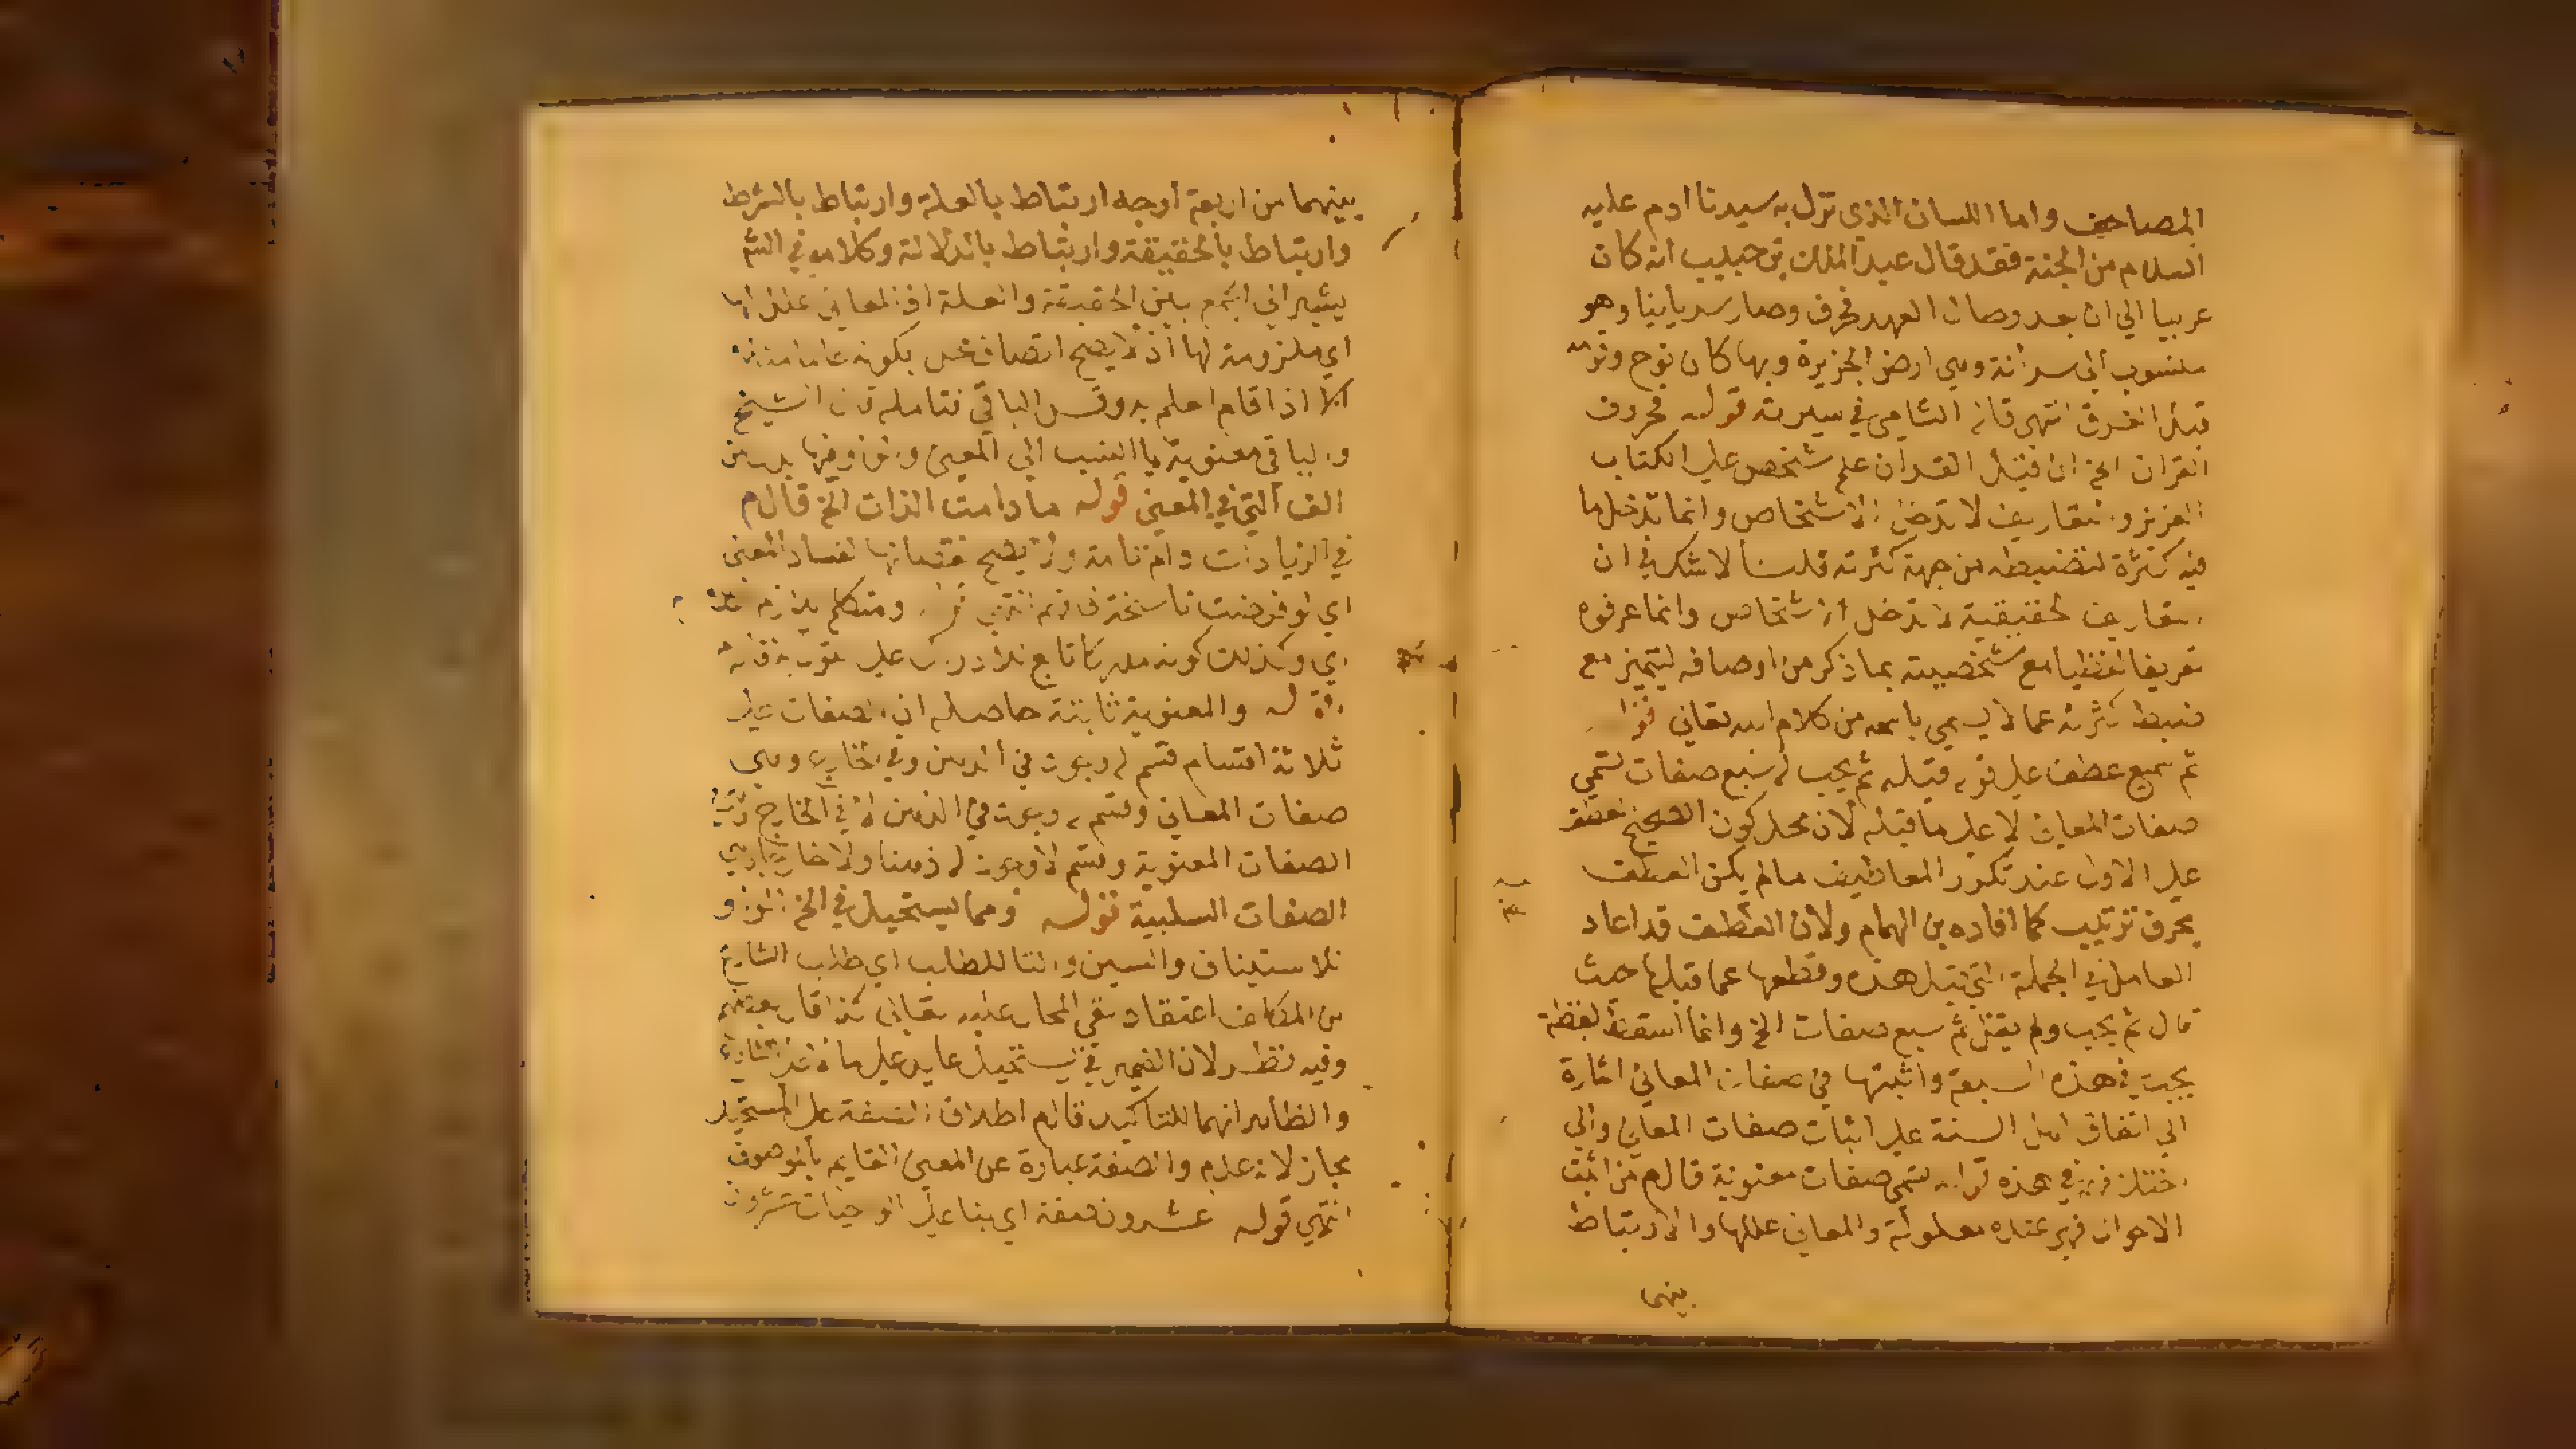 المصاحف واما اللسان الذي نزل به سيدنا ادم عليه
السلام من الجنة فقد قال عبد الملك بن حبيب انه كان
عربيا الي ان بعد وطال العهد فحرف وصار سريانيا وهو
منسوب الي سورانة وهي ارض الجزيرة وبها كان نوح وقومه
قبل الغرق انتهي قاله الشامي في سيرته قوله فحروف
القران الخ ان قيل القران علم شخص علي الكتاب
العزيز والتعاريف لا تدخل الاشخاص وانما تدخل ما
فيه كثرة لتضبطه من جهة كثرته قلنا لا شك في ان
التعاريف الحقيقية لا تدخل الاشخاص وانما عرفوه
تعريفا لفظيا مع شخصيته بما ذكر من اوصافه ليتميز مع
ضبط كثرته عما لا يسمي باسمه من كلام الله تعالي قوله
ثم سبع عطف علي قوله قبله ثم يجب له سبع صفات تسمي
صفات المعاني لا علي ما قبله لان محل كون الصحيح العطف
علي الاول عند تكرر المعاطيف مالم يكن العطف
بحرف ترتيب كما افاده بن الهمام ولان العطف قد اعاد
العامل في الجملة التي قبل هذه وقطعها عما قبلها حيث
قال ثم يجب ولم يقل ثم سبع صفات الخ وانما اسقط لفظة
يجب في هذه السبعة واثبتها في صفات المعاني اشارة
الي اتفاق اهل السنة علي اثبات صفات المعاني والي
اختلافهم في هذه قوله تسمي صفات معنوية قال م من اثبت
الاحوال فهي عنده معلولة والمعاني عللها والارتباط
بينهما
بينهما من اربعة اوجه ارتباط بالعلة وارتباط بالشرط
وارتباط بالحقيقة وارتباط بالدلالة وكلامه في الشم
يشير الي الجمع بين الحقيقة والعلة اذ المعاني علل لها
اي ملزومة لها اذ لا يصح اتصاف محل بكونه عالما مثلا
الا اذا قام العلم به وقس الباقي فتامله قال الشيخ
والباقي معنوية بالنسب الي المعني والواو فيها بدل من
الف التي في المعني قوله ما دامت الذات الخ قال م
في الزيادات دام تامة ولا يصح نقصانها لفساد المعني
اي لو فرضت ناسخة فافهم انتهي قوله ومتكلم يلزمه
اي وكذلك كونه مدركا تابع للادراك علي القول به قاله
قوله والمعنوية ثابتة حاصله ان الصفات علي
ثلاثة اقسام قسم له وجود في الذهن وفي الخارج وهي
صفات المعاني وقسم له وجود في الذهن لا في الخارج وهي
الصفات المعنوية وقسم لا وجود له ذهنا ولا خارجا وهي
الصفات السلبية قوله ومما يستحيل في الخ الواو
للاستيناف والسين والتا للطلب اي طلب الشارع
من المكلف اعتقاد نفي المحال عليه تعالي كذا قال بعضهم
وفيه نظر لان الضمير في يستحيل عايد علي ما لا علي الشارع
والظاهر انهما للتاكيد قال م اطلاق الصفة علي المستحيل
مجاز لانه عدم والصفة عبارة عن المعني القايم بالموصوف
انتهي قوله عشرون صفة اي بنا علي ان الواجبات عشرون